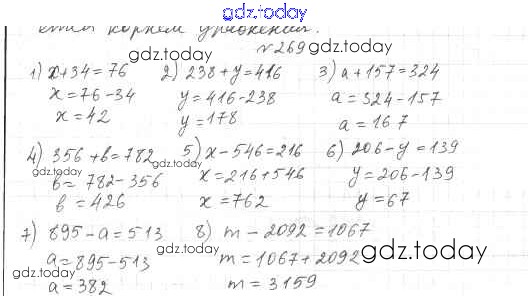 gdz.today
корнем уравнения.
№269
gdz.today
1) x+34=76 2) 238+y=416 3) a+157=324
x=76-34 y=416-238 a=324-157
x=42 y=178 a=167
gdz.today
gdz.today
4) 356+в=782 5) x-546=216 6) 206-y=139
gdz.today
gdz.today
в=782-356 x=216+546 y=206-139
в=426 x=762 y=67
7) 895-a=513 8) m-2092=1067
gdz.today
gdz.today
a=895-513 m=1067+2092
a=382 m=3159
gdz.today